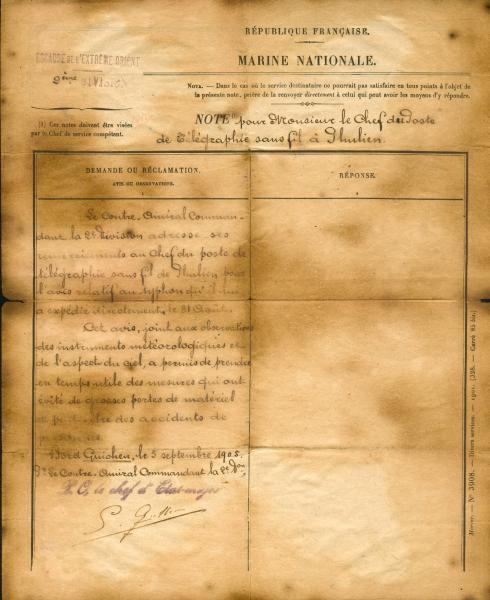 RÉPUBLIQUE FRANÇAISE.
MARINE NATIONALE.
ESCADRE DE L'EXTRÊME ORIENT
2ème DIVISION
NOTA. — Dans le cas où le service destinataire ne pourrait pas satisfaire en tous points à l'objet de
la présente note, prière de la renvoyer directement à celui qui peut avoir les moyens d'y répondre.
(1) Ces notes doivent être visées
par le Chef de service compétent.
NOTE pour Monsieur le Chef du Poste
de Télégraphie sans fil à Thulien.
DEMANDE OU RÉCLAMATION,
AVIS OU OBSERVATIONS.
RÉPONSE.
Le Contre-Amiral Comman-
dant la 2e Division adresse ses
remerciements au Chef du poste de
télégraphie sans fil de Thulien pour
l'avis relatif au typhon qu'il lui
a expédié directement, le 31 Août.
Cet avis, joint aux observations
des instruments météorologiques et
de l'aspect du ciel, a permis de prendre
en temps utile des mesures qui ont
évité de grosses pertes de matériel
des accidents de
personnes.
Bord Guichen, le 5 septembre 1905.
Le Contre-Amiral Commandant la 2e Don
P. O, le chef d'Etat-major
N° 3908. — Divers services.